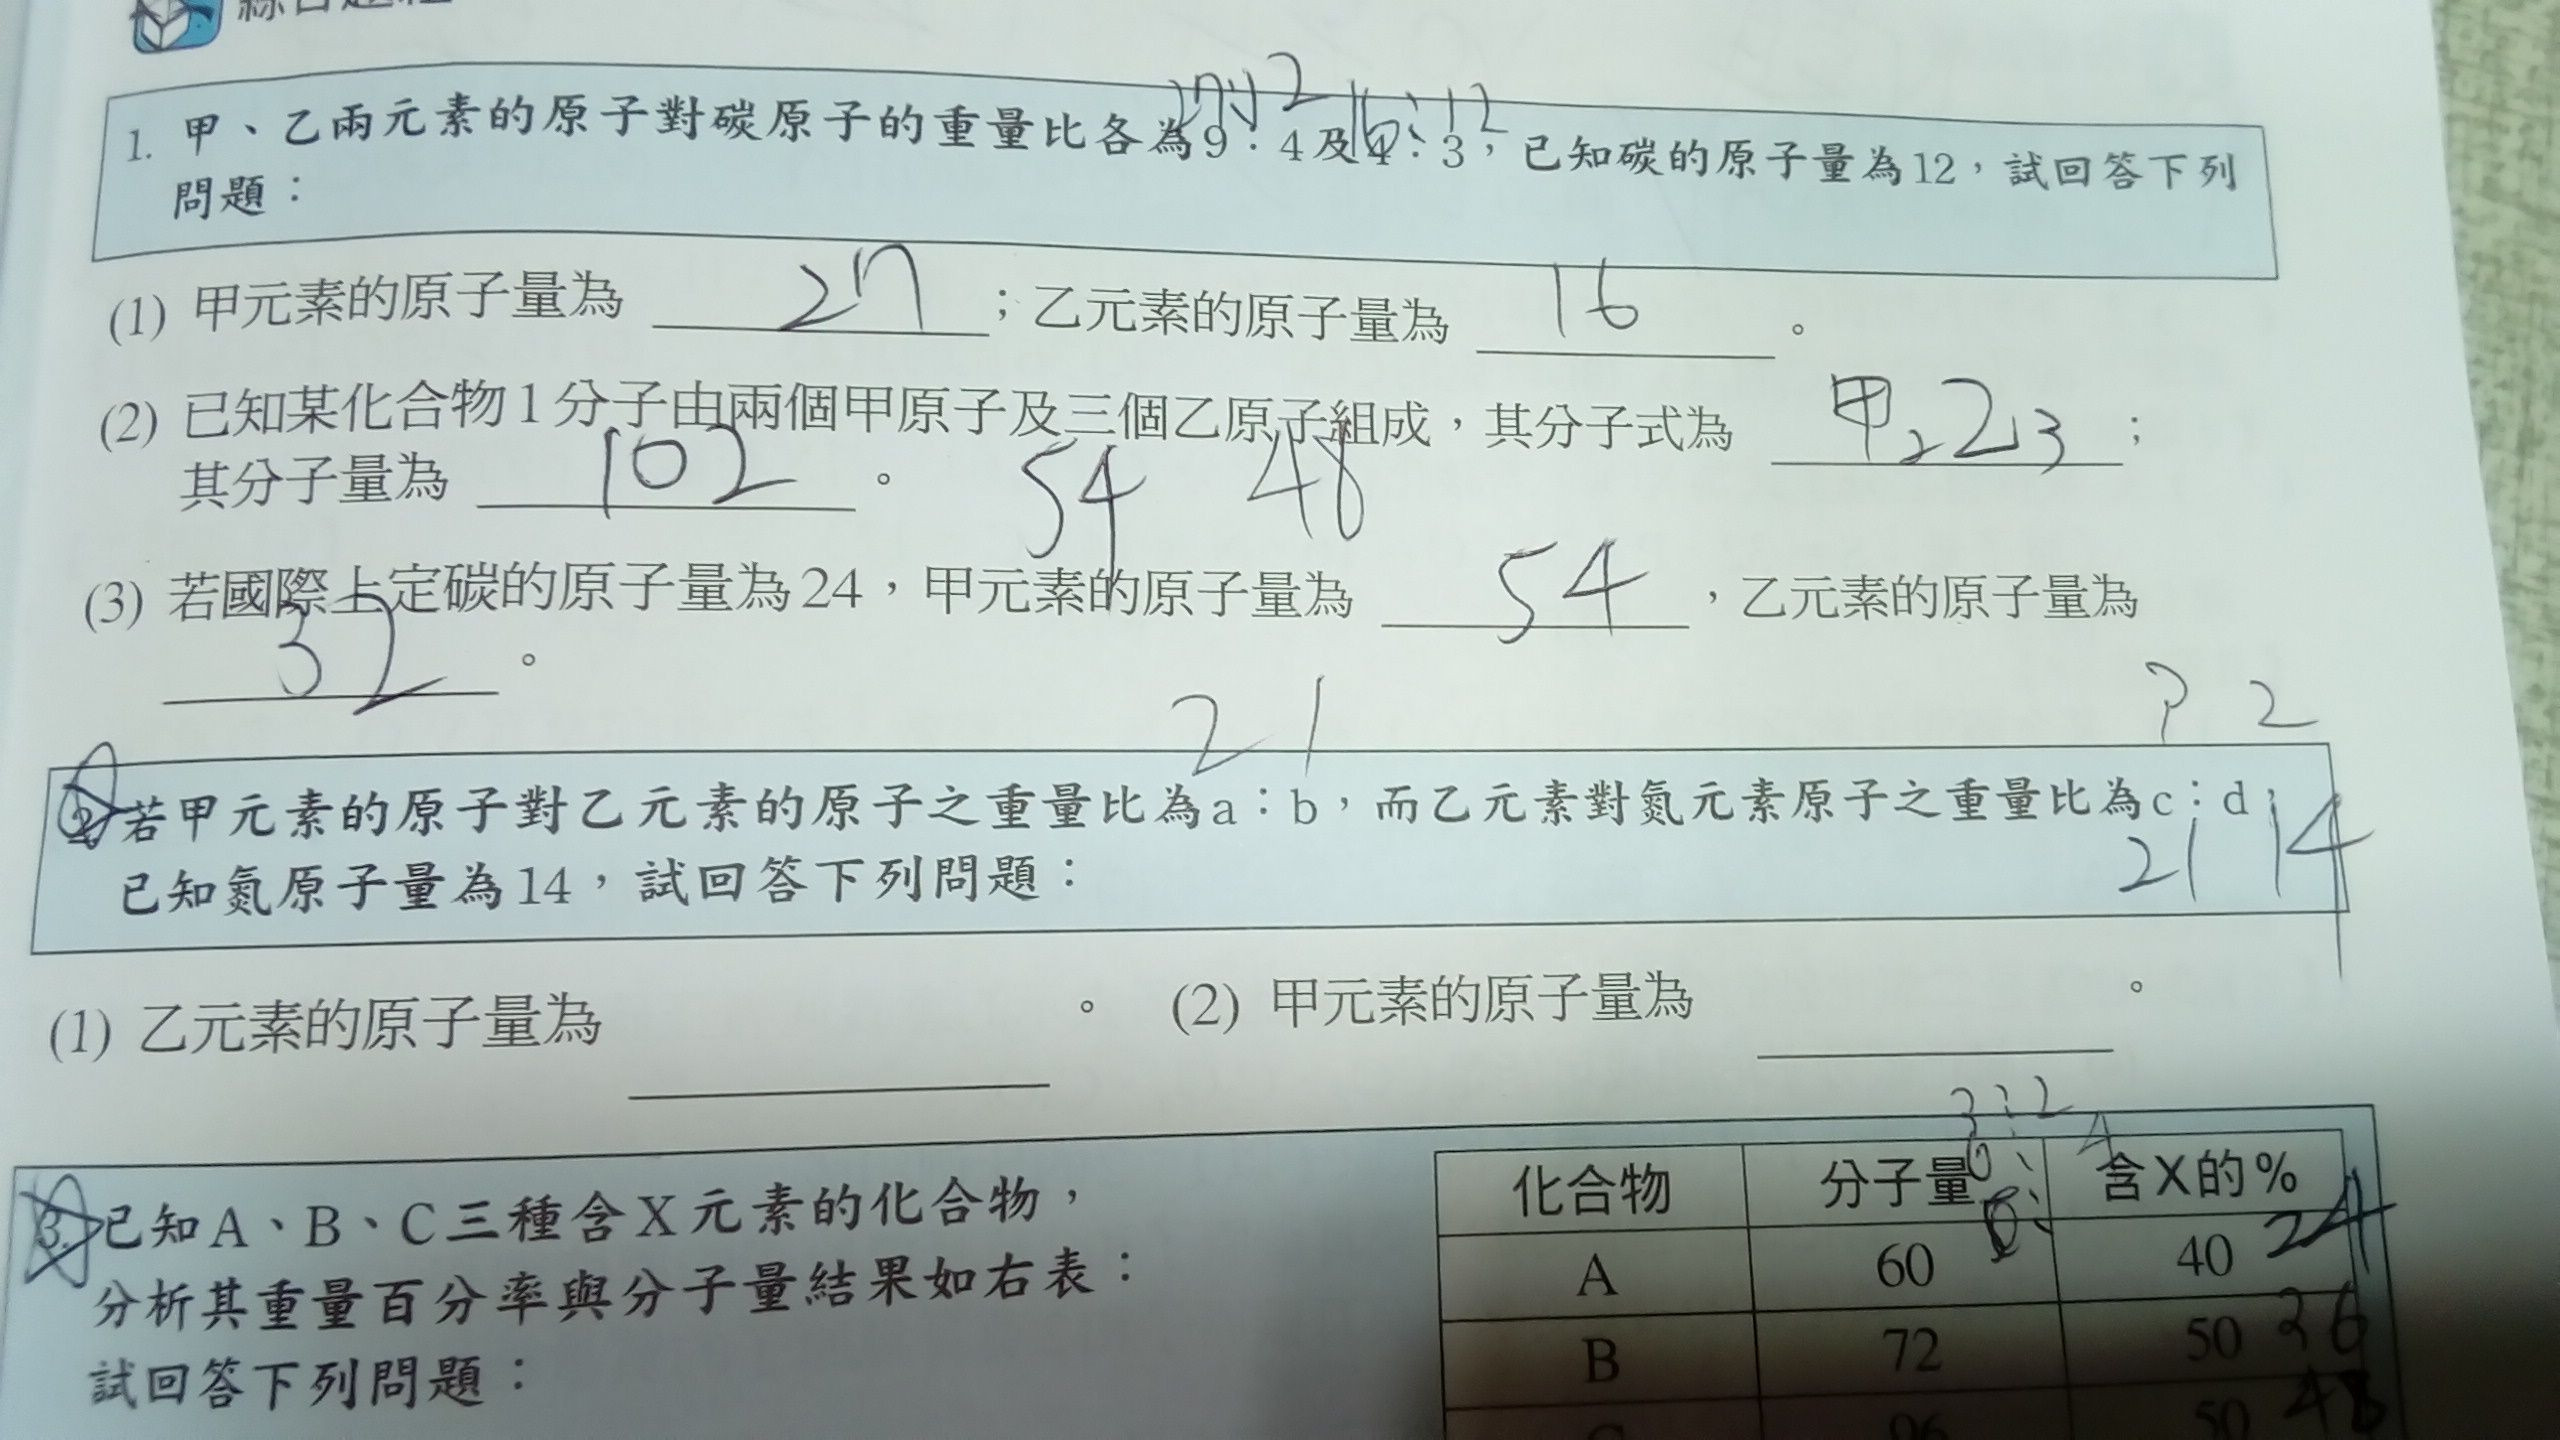 27:12 16:12
1. 甲、乙兩元素的原子對碳原子的重量比各為9：4及4：3，已知碳的原子量為12，試回答下列
問題：
(1) 甲元素的原子量為 27 ；乙元素的原子量為 16 。
(2) 已知某化合物1分子由兩個甲原子及三個乙原子組成，其分子式為 甲₂乙₃ ；
其分子量為 102 。 54 48
(3) 若國際上定碳的原子量為24，甲元素的原子量為 54 ，乙元素的原子量為
32 。
2 1 2
2. 若甲元素的原子對乙元素的原子之重量比為a：b，而乙元素對氮元素原子之重量比為c：d，
21 14
已知氮原子量為14，試回答下列問題：
(1) 乙元素的原子量為 。 (2) 甲元素的原子量為 。
3:2
3. 已知A、B、C三種含X元素的化合物，
分析其重量百分率與分子量結果如右表：
試回答下列問題：
化合物 分子量 含X的%
A 60 40 24
B 72 50 36
C 96 50 48